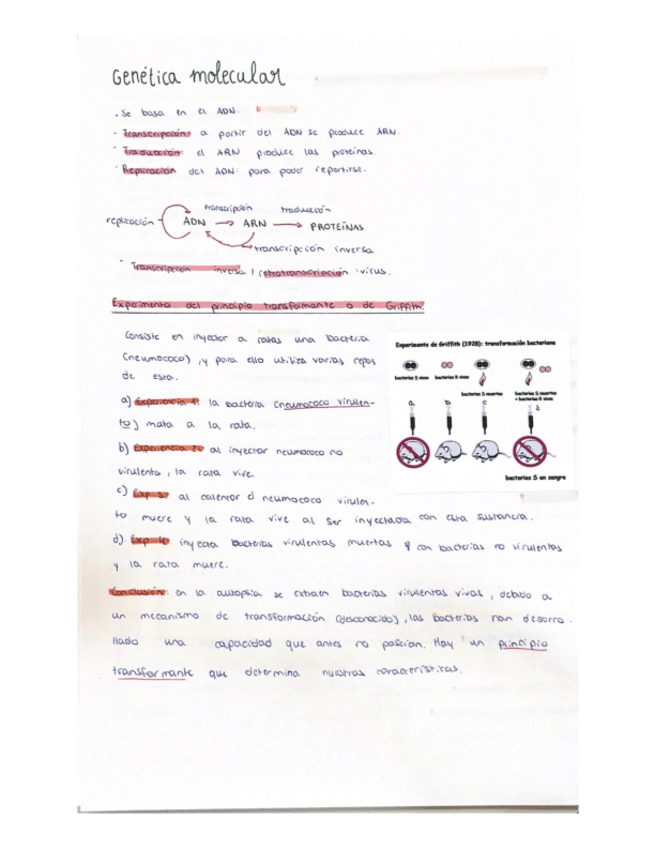 Genética molecular
· Se basa en el ADN.
· Transcripción: a partir del ADN se produce ARN.
· Traducción: el ARN produce las proteínas.
· Replicación del ADN: para poder repartirse.
transcripción traducción
replicación ADN → ARN → PROTEÍNAS
transcripción inversa
· Transcripción inversa / retrotranscripción: virus.
Experimento del principio transformante o de Griffith.
Consiste en inyectar a ratas una bacteria
(neumococo), y para ello utiliza varias cepas
de esta.
a) Experiencia 1: la bacteria (neumococo virulen-
to) mata a la rata.
b) Experiencia 2: al inyectar neumococo no
virulento, la rata vive.
c) Exp 3: al calentar el neumococo virulen-
to muere y la rata vive al ser inyectada con esta sustancia.
d) Exp 4: inyecta bacterias virulentas muertas y con bacterias no virulentas
y la rata muere.
Conclusión: en la autopsia se extraen bacterias virulentas vivas, debido a
un mecanismo de transformación (desconocido), las bacterias han desarro-
llado una capacidad que antes no poseían. Hay un principio
transformante que determina nuestras características.
Experimento de Griffith (1928): transformación bacteriana
bacterias S vivas bacterias R vivas
bacterias S muertas
bacterias S muertas
+ bacterias R vivas
a b c d
bacterias S en sangre